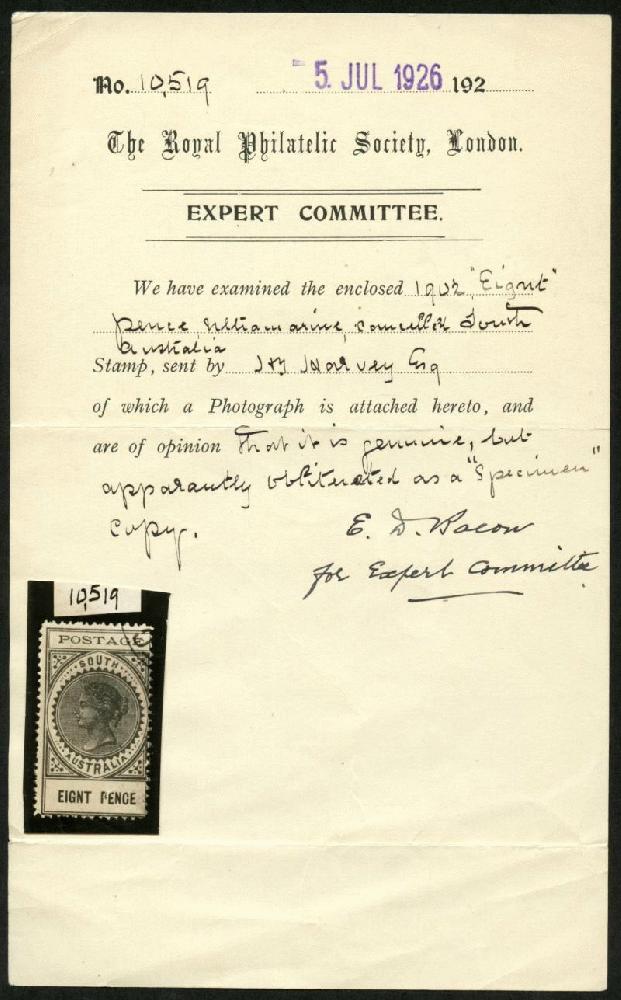 No. 10,519 5. JUL 1926 192
The Royal Philatelic Society, London.
EXPERT COMMITTEE.
We have examined the enclosed 1902 "Eignt"
pence, ultramarine, cancelled South
Australia
Stamp, sent by Harvey Esq
of which a Photograph is attached hereto, and
are of opinion that it is genuine, but
apparently obliterated as a "Specimen"
copy.
E. D. Bacon
for Expert Committee
10,519
POSTAGE
SOUTH
AUSTRALIA
EIGNT PENCE